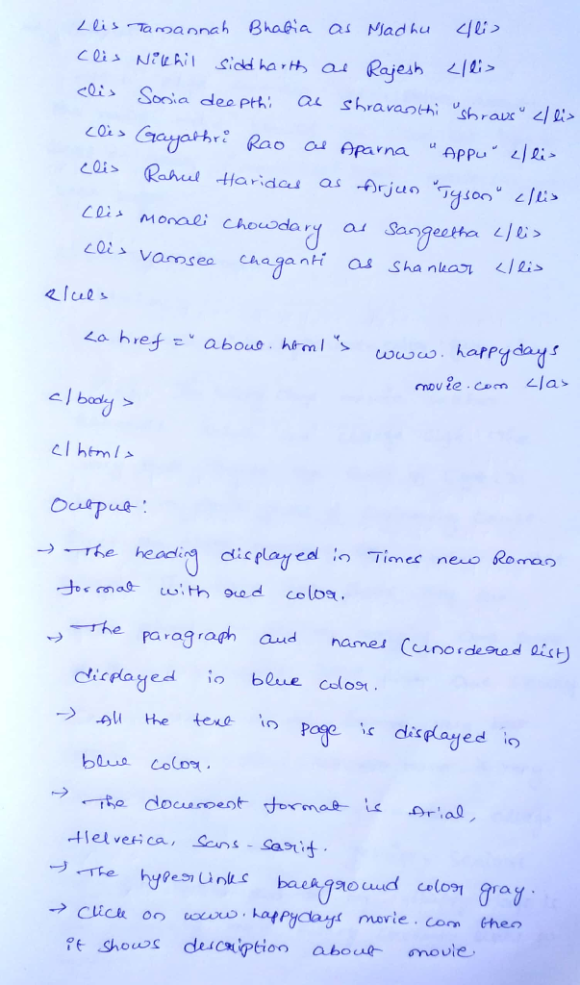 <li> Tamannah Bhatia as Madhu </li>
<li> Nikhil Siddharth as Rajesh </li>
<li> Sonia deepthi as Shravanthi "shravs" </li>
<li> Gayathri Rao as Aparna "Appu" </li>
<li> Rahul Haridas as Arjun "Tyson" </li>
<li> Monali chowdary as Sangeetha </li>
<li> Vamsee chaganti as Shankar </li>
</ul>
<a href = "about.html"> www.happydays
movie.com </a>
</body>
</html>
Output:
→ The heading displayed in Times new Roman
format with red color.
→ The paragraph and names (unordered list)
displayed in blue color.
→ All the text in page is displayed in
blue color.
→ The document format is Arial,
Helvetica, Sans-Sarif.
→ The hyperlinks background color gray.
→ Click on www.happydays movie.com then
it shows description about movie.